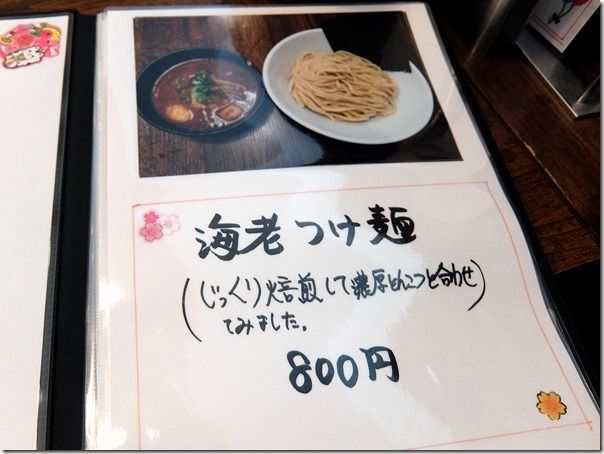 海老つけ麺
(じっくり焙煎して濃厚とんこつと合わせ
てみました。)
800円